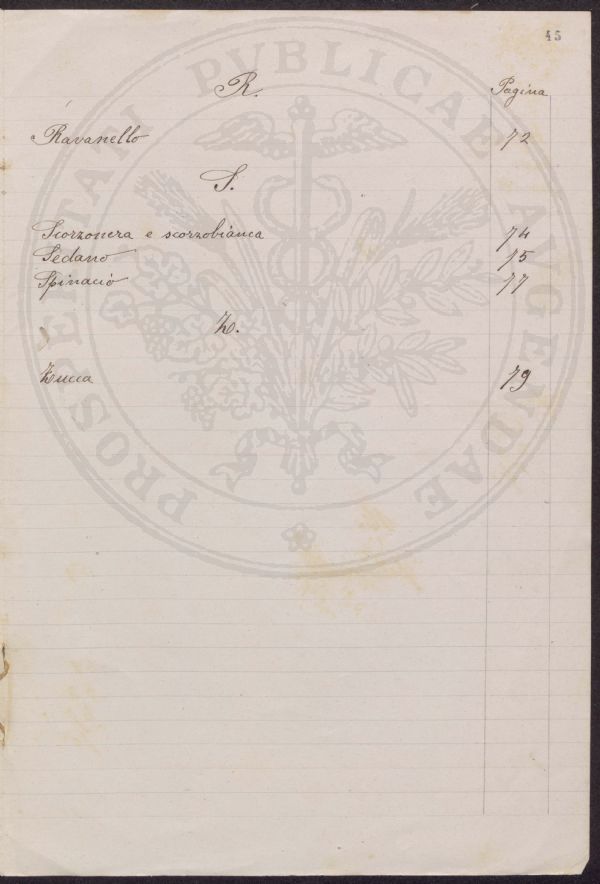 45
R. Pagina
Ravanello 72
S.
Scorzonera e scorzobianca 74
Sedano 75
Spinacio 77
Z.
Zucca 79
PROSPERITATI PVBLICAE AVGENDAE